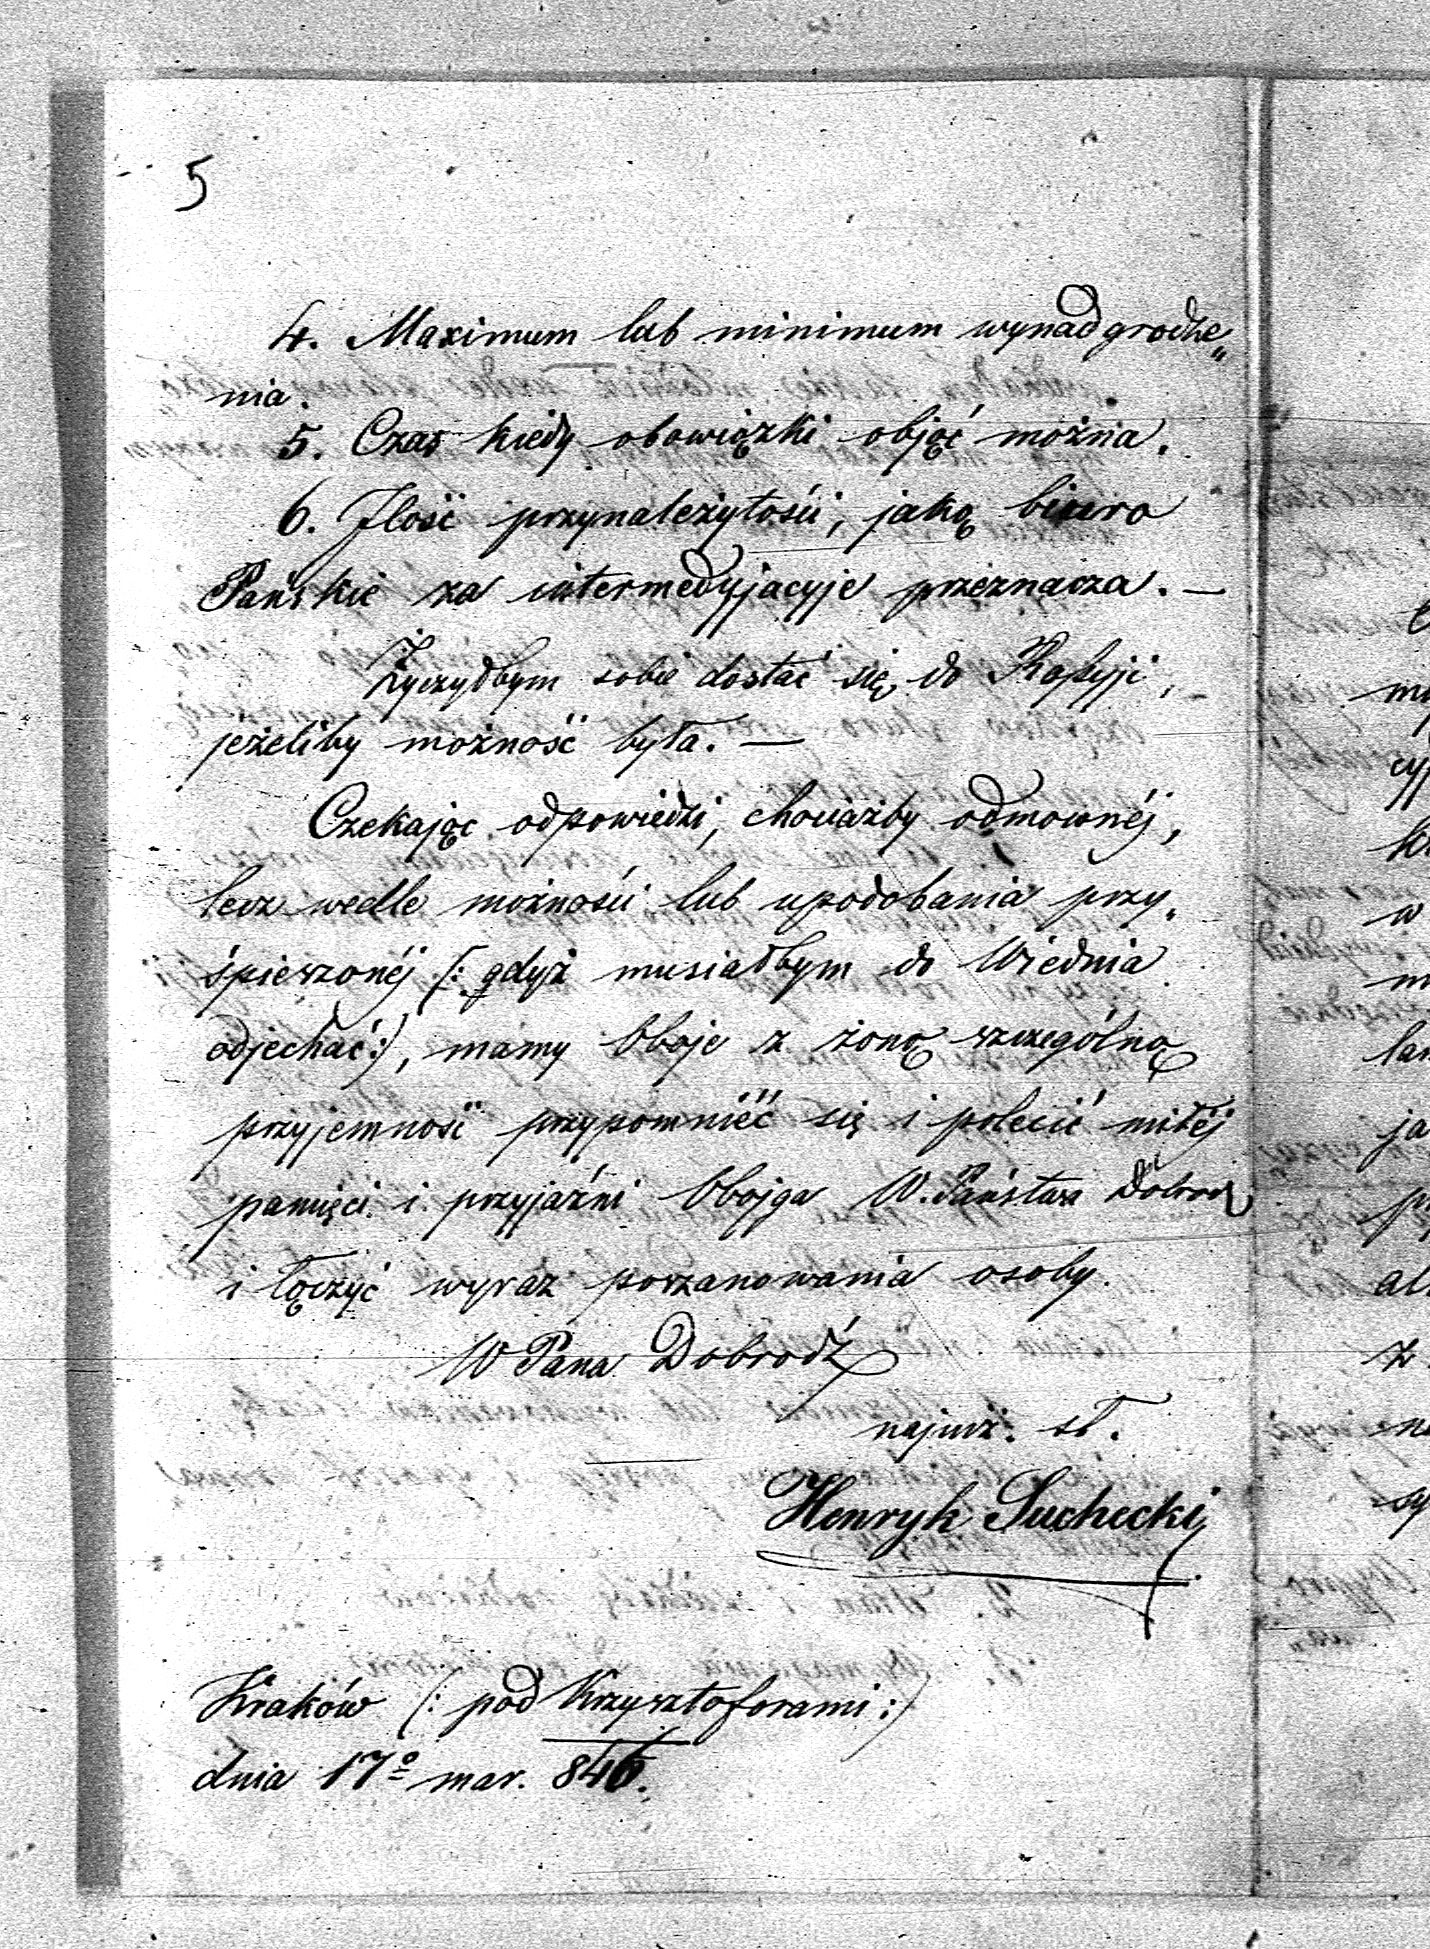 5
4. Maximum lub minimum wynadgrodze„
nia.
5. Czas kiedy obowiązki objąć można.
6. Ilość przynależytości, jaką biuro
Pańskie za intermedyjacyje przeznacza. —
Życzyłbym sobie dostać się do Rossyji,
jeżeliby możność była. —
Czekając odpowiedzi, chociażby odmownéj,
lecz wedle możności lub upodobania przy„
śpieszonéj (: gdyż musiałbym do Wiednia
odjechać:), mamy Oboje z żoną szczególną
przyjemność przypomnieć się i polecić miłéj
pamięci i przyjaźni Obojga W. Państwa Dobrodź
i łączyć wyraz poszanowania osoby
W Pana Dobrodź
najniż. sł.
Henryk Suchecki
Kraków (: pod Krzysztoforami :)
dnia 17º mar. 846.